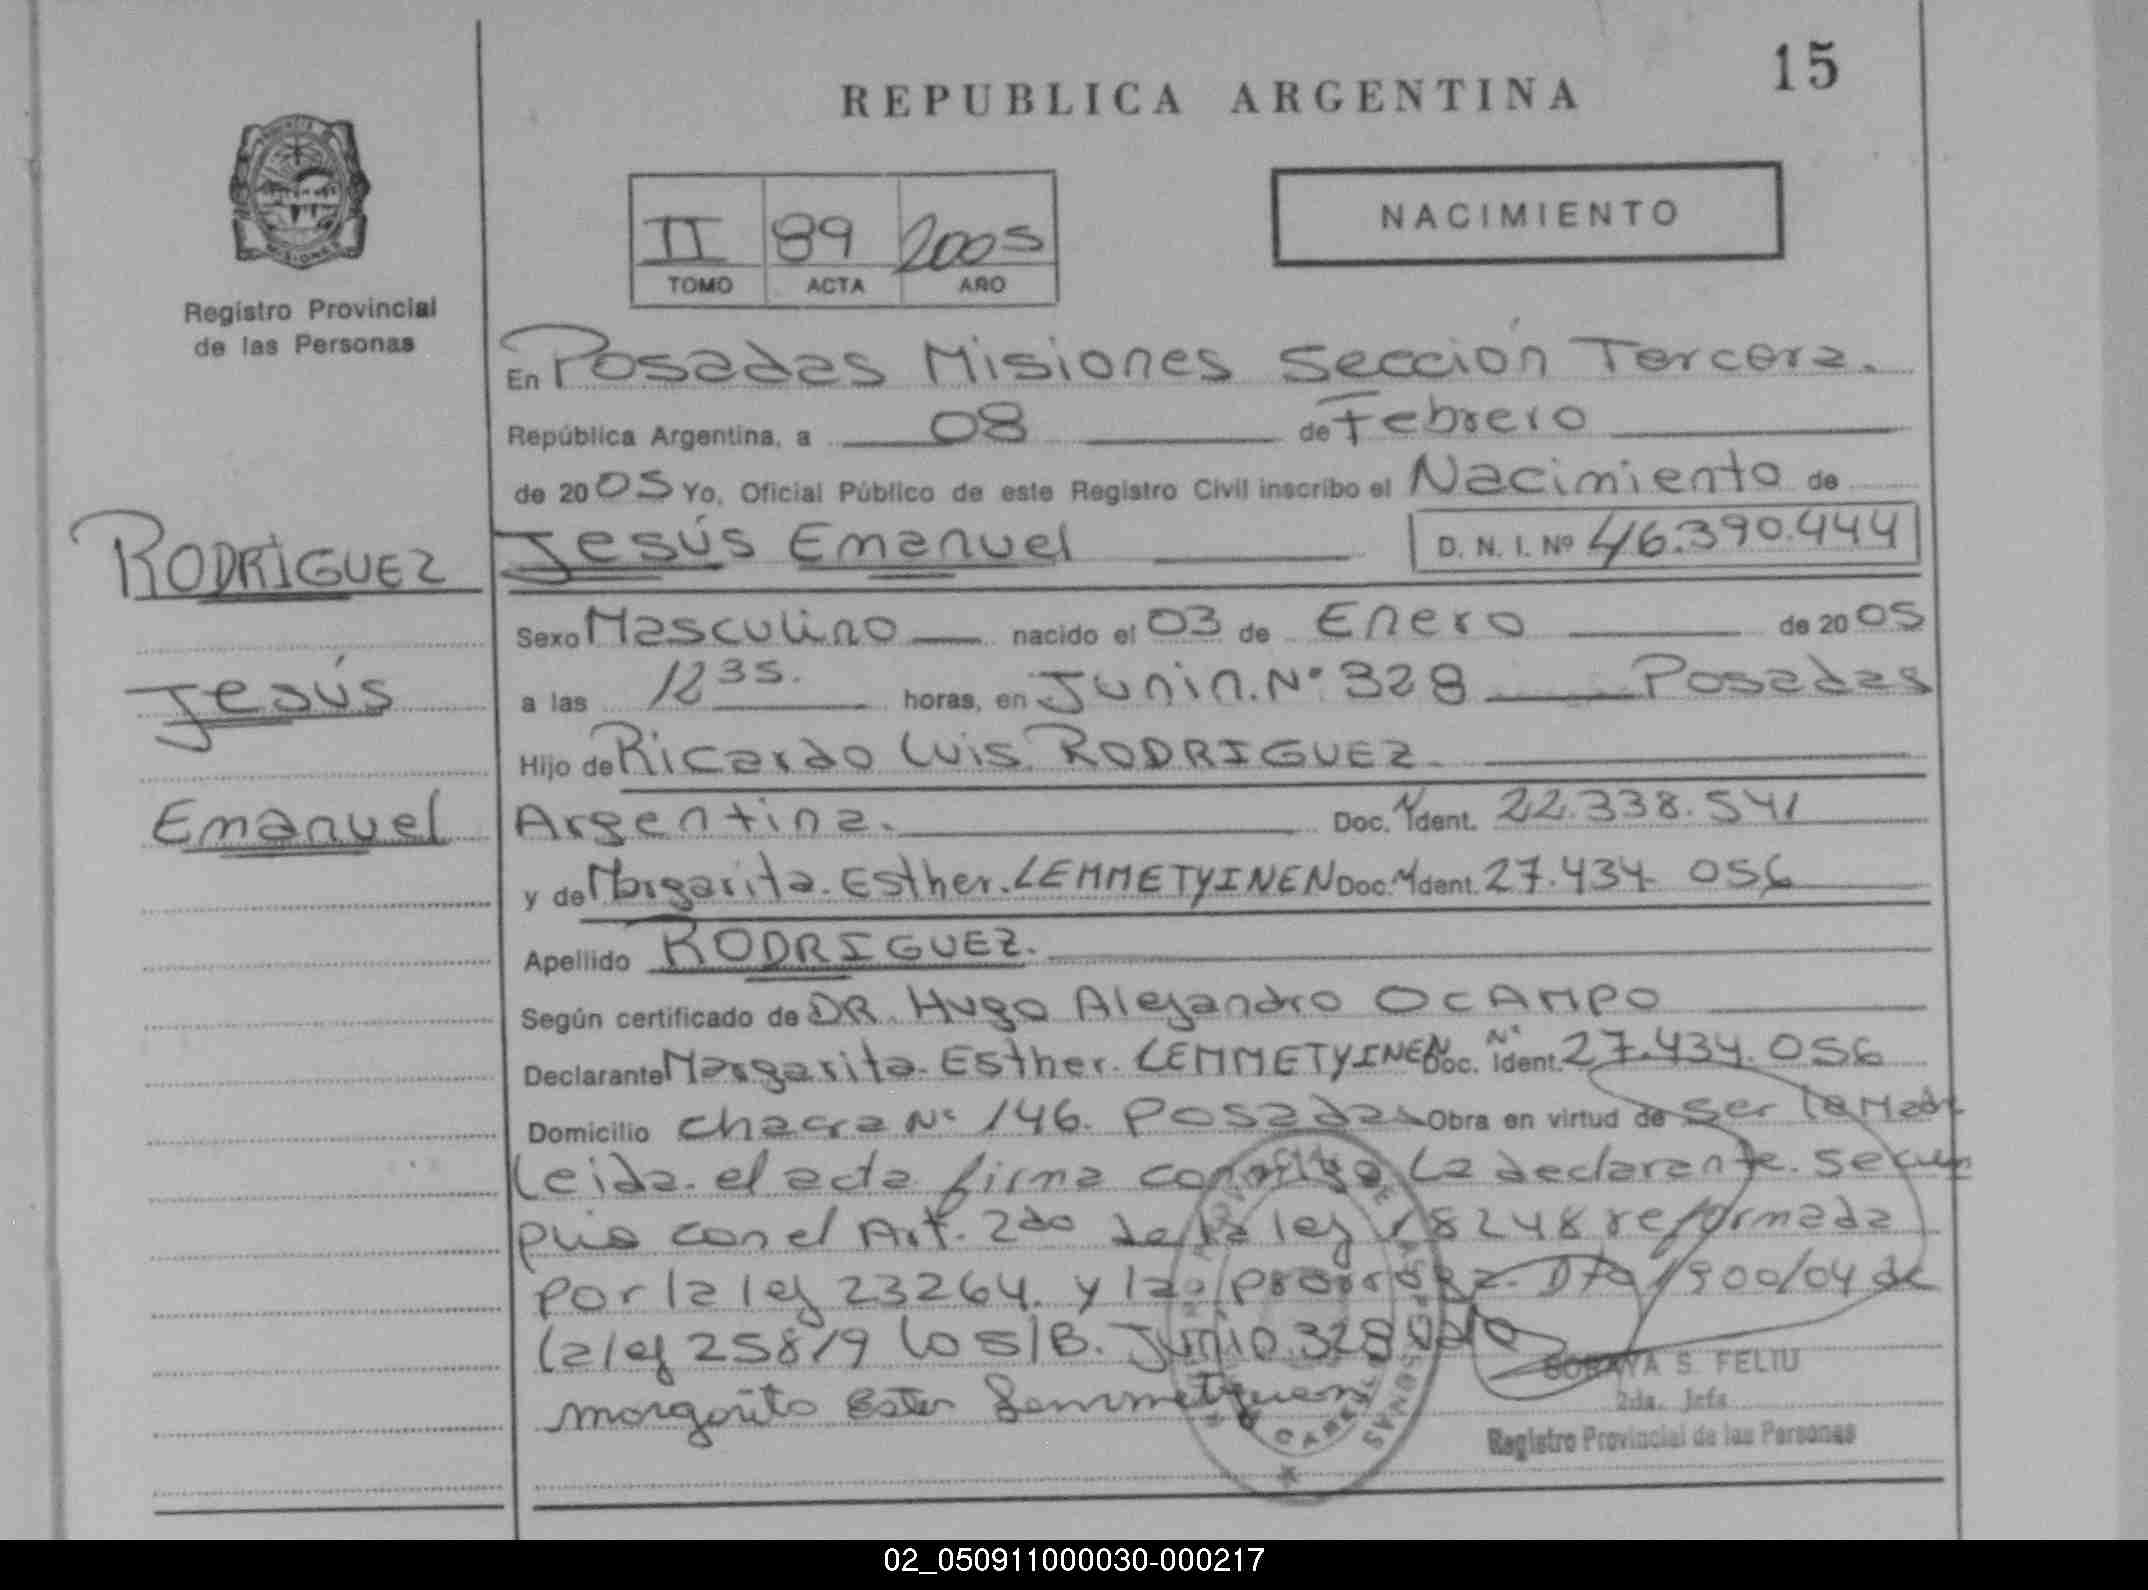 15
REPUBLICA ARGENTINA
NACIMIENTO
II 89 2005
TOMO ACTA AÑO
Registro Provincial
de las Personas
En Posadas Misiones Sección Tercera.
República Argentina, a 08 de Febrero
de 2005 Yo, Oficial Público de este Registro Civil inscribo el Nacimiento de
RODRIGUEZ
Jesús Emanuel D. N. I. Nº 46.390.444
Sexo Masculino nacido el 03 de Enero de 2005
Jesús
a las 12 35. horas, en Junin. Nº 328 Posadas
Hijo de Ricardo Luis RODRIGUEZ
Emanuel
Argentina. Doc. Ident. 22.338.541
y de Margarita. Esther. LEMMETYINEN Doc. Ident. 27.434 056
Apellido RODRIGUEZ.
Según certificado de DR. Hugo Alejandro OCAMPO
Declarante Margarita. Esther. LEMMETYINEN Doc. Nº Ident. 27.434.056
Domicilio Chacra Nº 146. Posadas Obra en virtud de ser la Madre
Leida. el acta firma conmigo la declarante. Se cum
plio con el Art. 2do de la ley 18248 reformada
por la ley 23264. y la prorroga. Dto 1900/04 de
la ley 25819 Lo S/B. Junio. 328 Vale
SORAYA S. FELIU
2da. Jefa
Registro Provincial de las Personas
02_050911000030-000217